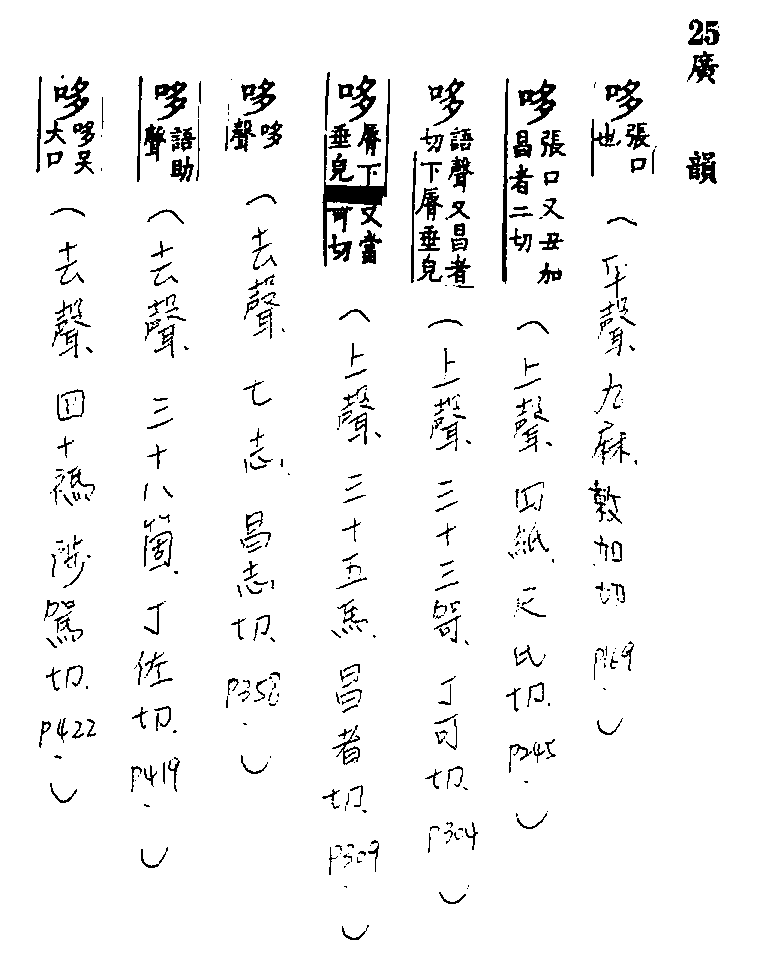 25廣韻
哆 張口也（平聲、九麻、敕加切 P169.）
哆 張口又丑加昌者二切（上聲、四紙、尺氏切、P245.）
哆 語聲又昌者切下脣垂皃（上聲、三十三哿、丁可切、P304.）
哆 脣下垂皃又當可切（上聲、三十五馬、昌者切、P309.）
哆 哆聲（去聲、七志、昌志切、P358.）
哆 語助聲（去聲、三十八箇、丁佐切、P419.）
哆 哆吴大口（去聲、四十禡、陟駕切、P422.）